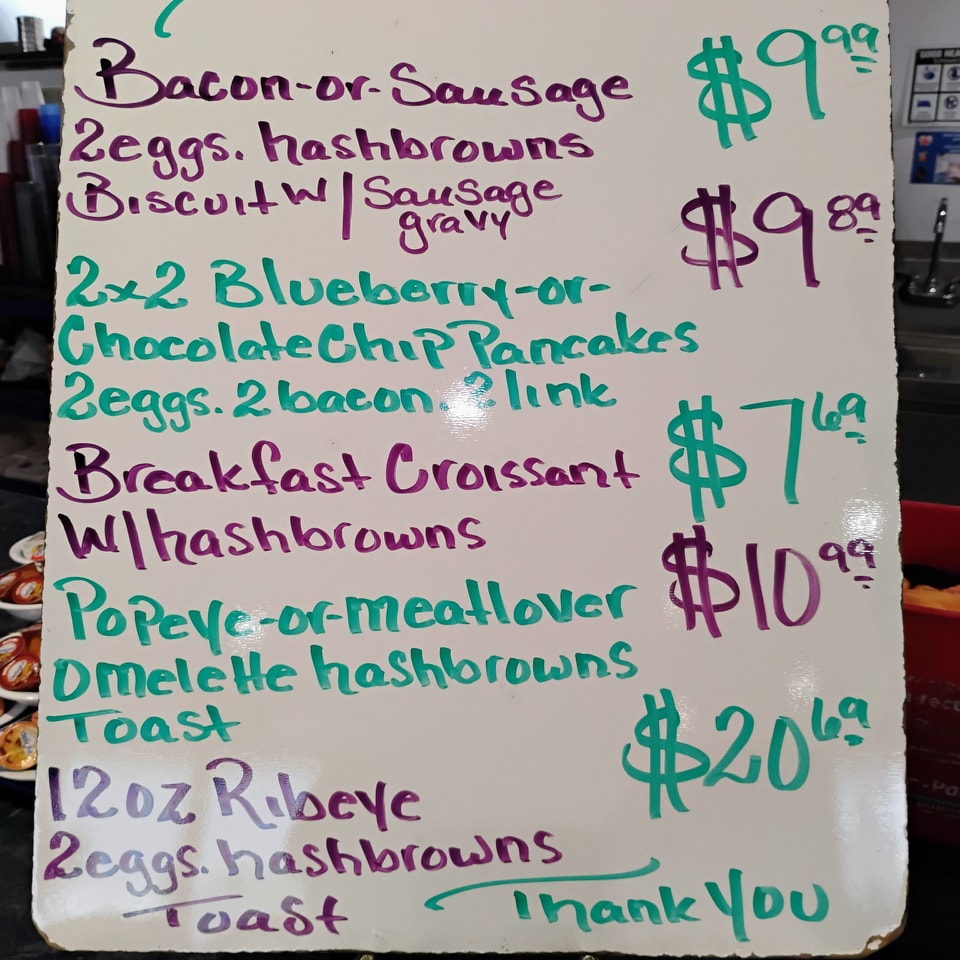 Bacon-or-Sausage $9.99
2eggs. hashbrowns
Biscuit W/Sausage gravy $9.89
2x2 Blueberry-or-
Chocolate Chip Pancakes
2eggs. 2bacon. 2link $7.69
Breakfast Croissant
W/hashbrowns $10.99
Popeye-or-meatlover
omelette hashbrowns
Toast $20.69
12oz Ribeye
2eggs. hashbrowns
Toast Thank You
GOOD HEA